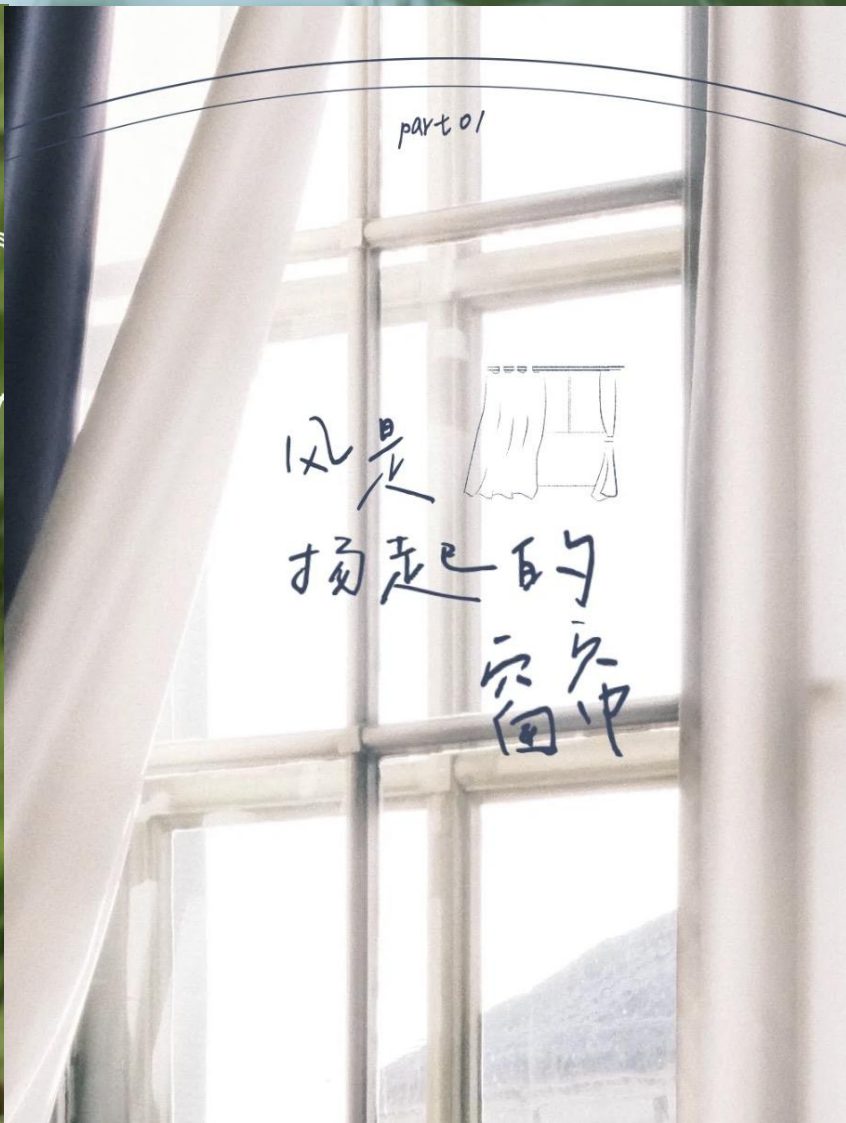 part 01
风是
扬起的
窗帘